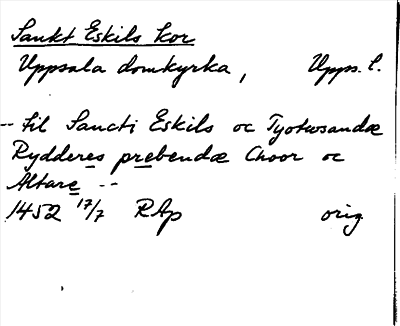 Sankt Eskils kor
Uppsala domkyrka, Upps. l.
-- til Sancti Eskils oc Tyotwsandæ
Rydderes prebendæ Choor oc
Altare --
1452 17/7 RAp orig